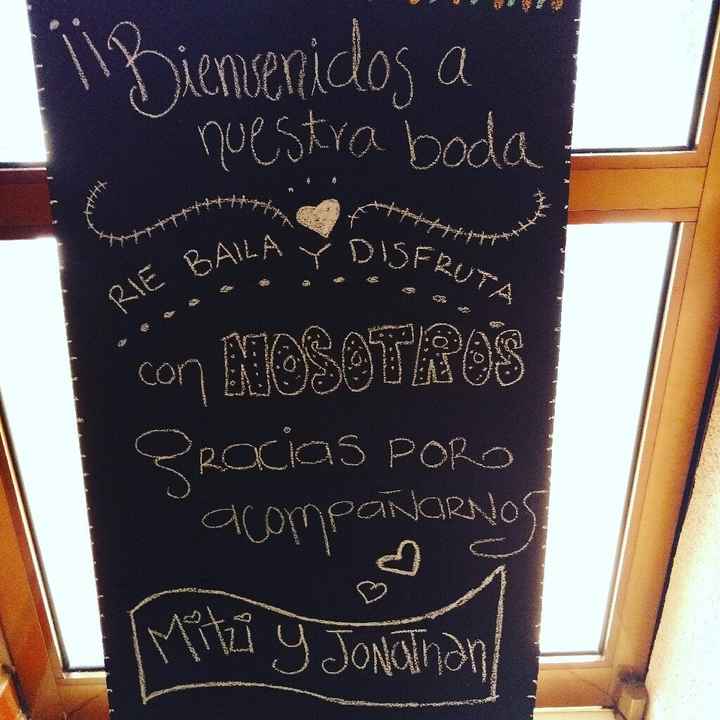 ¡¡Bienvenidos a
nuestra boda
RIE BAILA Y DISFRUTA
con NOSOTROS
Gracias POR
acompañarnos
Mitzi y Jonathan